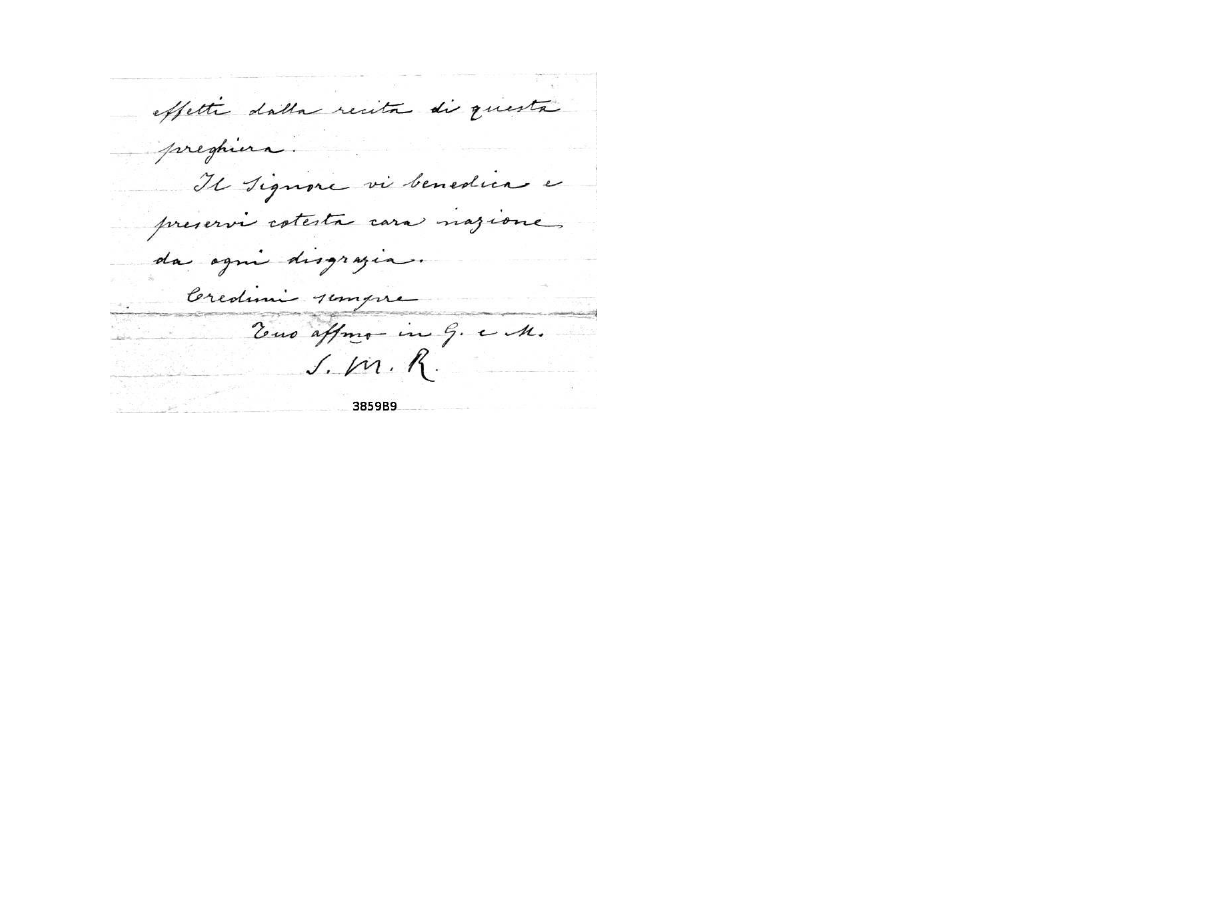 effetti dalla recita di questa
preghiera.
Il Signore vi benedica e
preservi cotesta cara nazione
da ogni disgrazia.
Credimi sempre
Tuo affmo in G. e M.
S. M. R.
3859B9